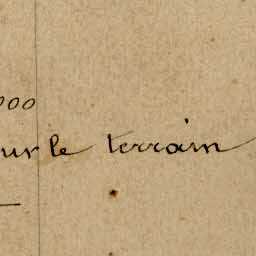 000
sur le terrain